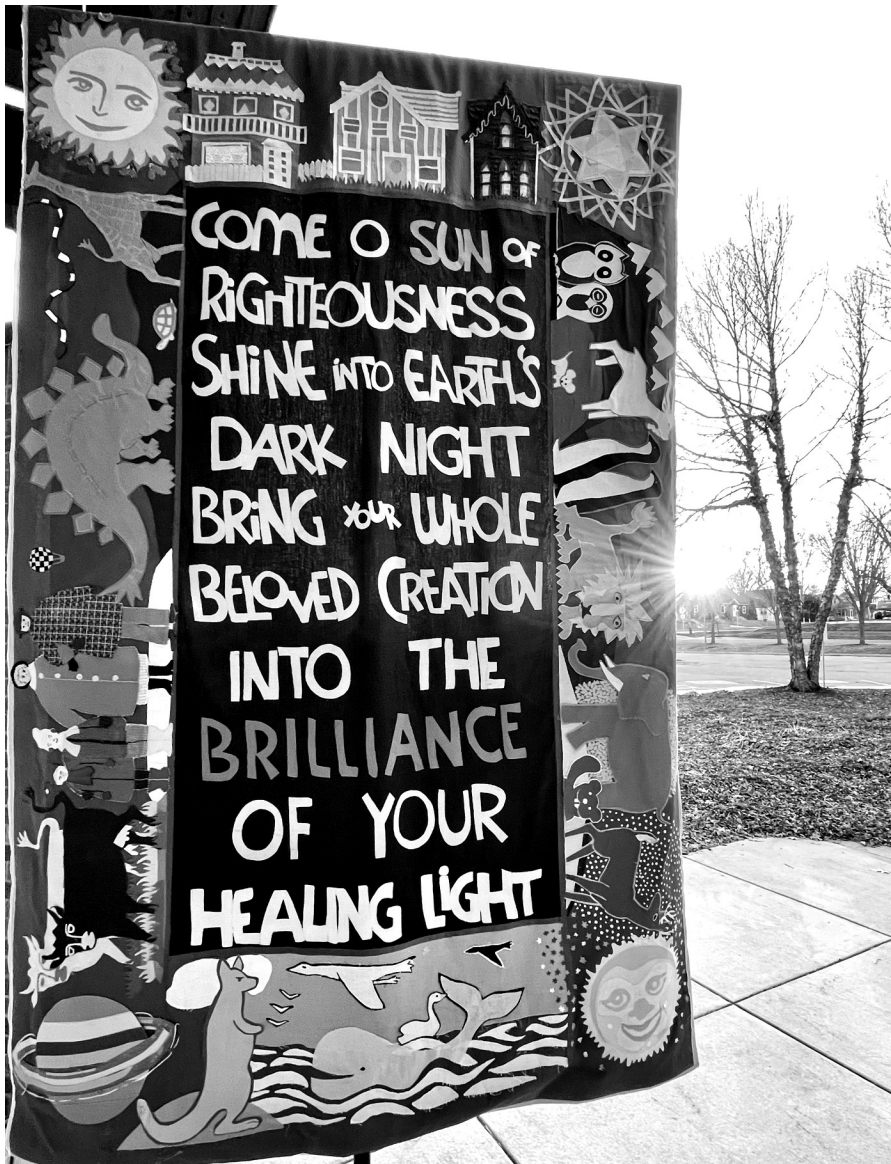 COME O SUN OF
RiGHTEOUSNESS
SHiNE iNTO EARTH'S
DARK NIGHT
BRiNG YOUR WHOLE
BELOVED CREATION
INTO THE
BRILLIANCE
OF YOUR
HEALING LiGHT